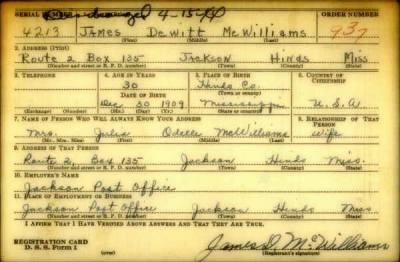 SERIAL NUMBER ORDER NUMBER
4213 JAMES Dewitt McWilliams 937
(First) (Middle) (Last)
2. ADDRESS (PRINT)
Route 2 Box 135 JACKSON Hinds Miss
(Number and street or R. F. D. number) (Town) (County) (State)
3. TELEPHONE 4. AGE IN YEARS 5. PLACE OF BIRTH 6. COUNTRY OF CITIZENSHIP
30 Hinds Co.
DATE OF BIRTH (Town or county)
Dec 30 1909 Mississippi U.S.A.
(Exchange) (Number) (Mo.) (Day) (Yr.) (State or country)
7. NAME OF PERSON WHO WILL ALWAYS KNOW YOUR ADDRESS 8. RELATIONSHIP OF THAT PERSON
Mrs. Julia Odelle McWilliams wife
(Mr., Mrs., Miss) (First) (Middle) (Last)
9. ADDRESS OF THAT PERSON
Route 2, Box 135 Jackson Hinds Miss.
(Number and street or R. F. D. number) (Town) (County) (State)
10. EMPLOYER'S NAME
Jackson Post Office
11. PLACE OF EMPLOYMENT OR BUSINESS
Jackson Post Office Jackson Hinds Miss
(Number and street or R. F. D. number) (Town) (County) (State)
I AFFIRM THAT I HAVE VERIFIED ABOVE ANSWERS AND THAT THEY ARE TRUE.
REGISTRATION CARD
D. S. S. Form 1
James D. McWilliams
(Registrant's signature)